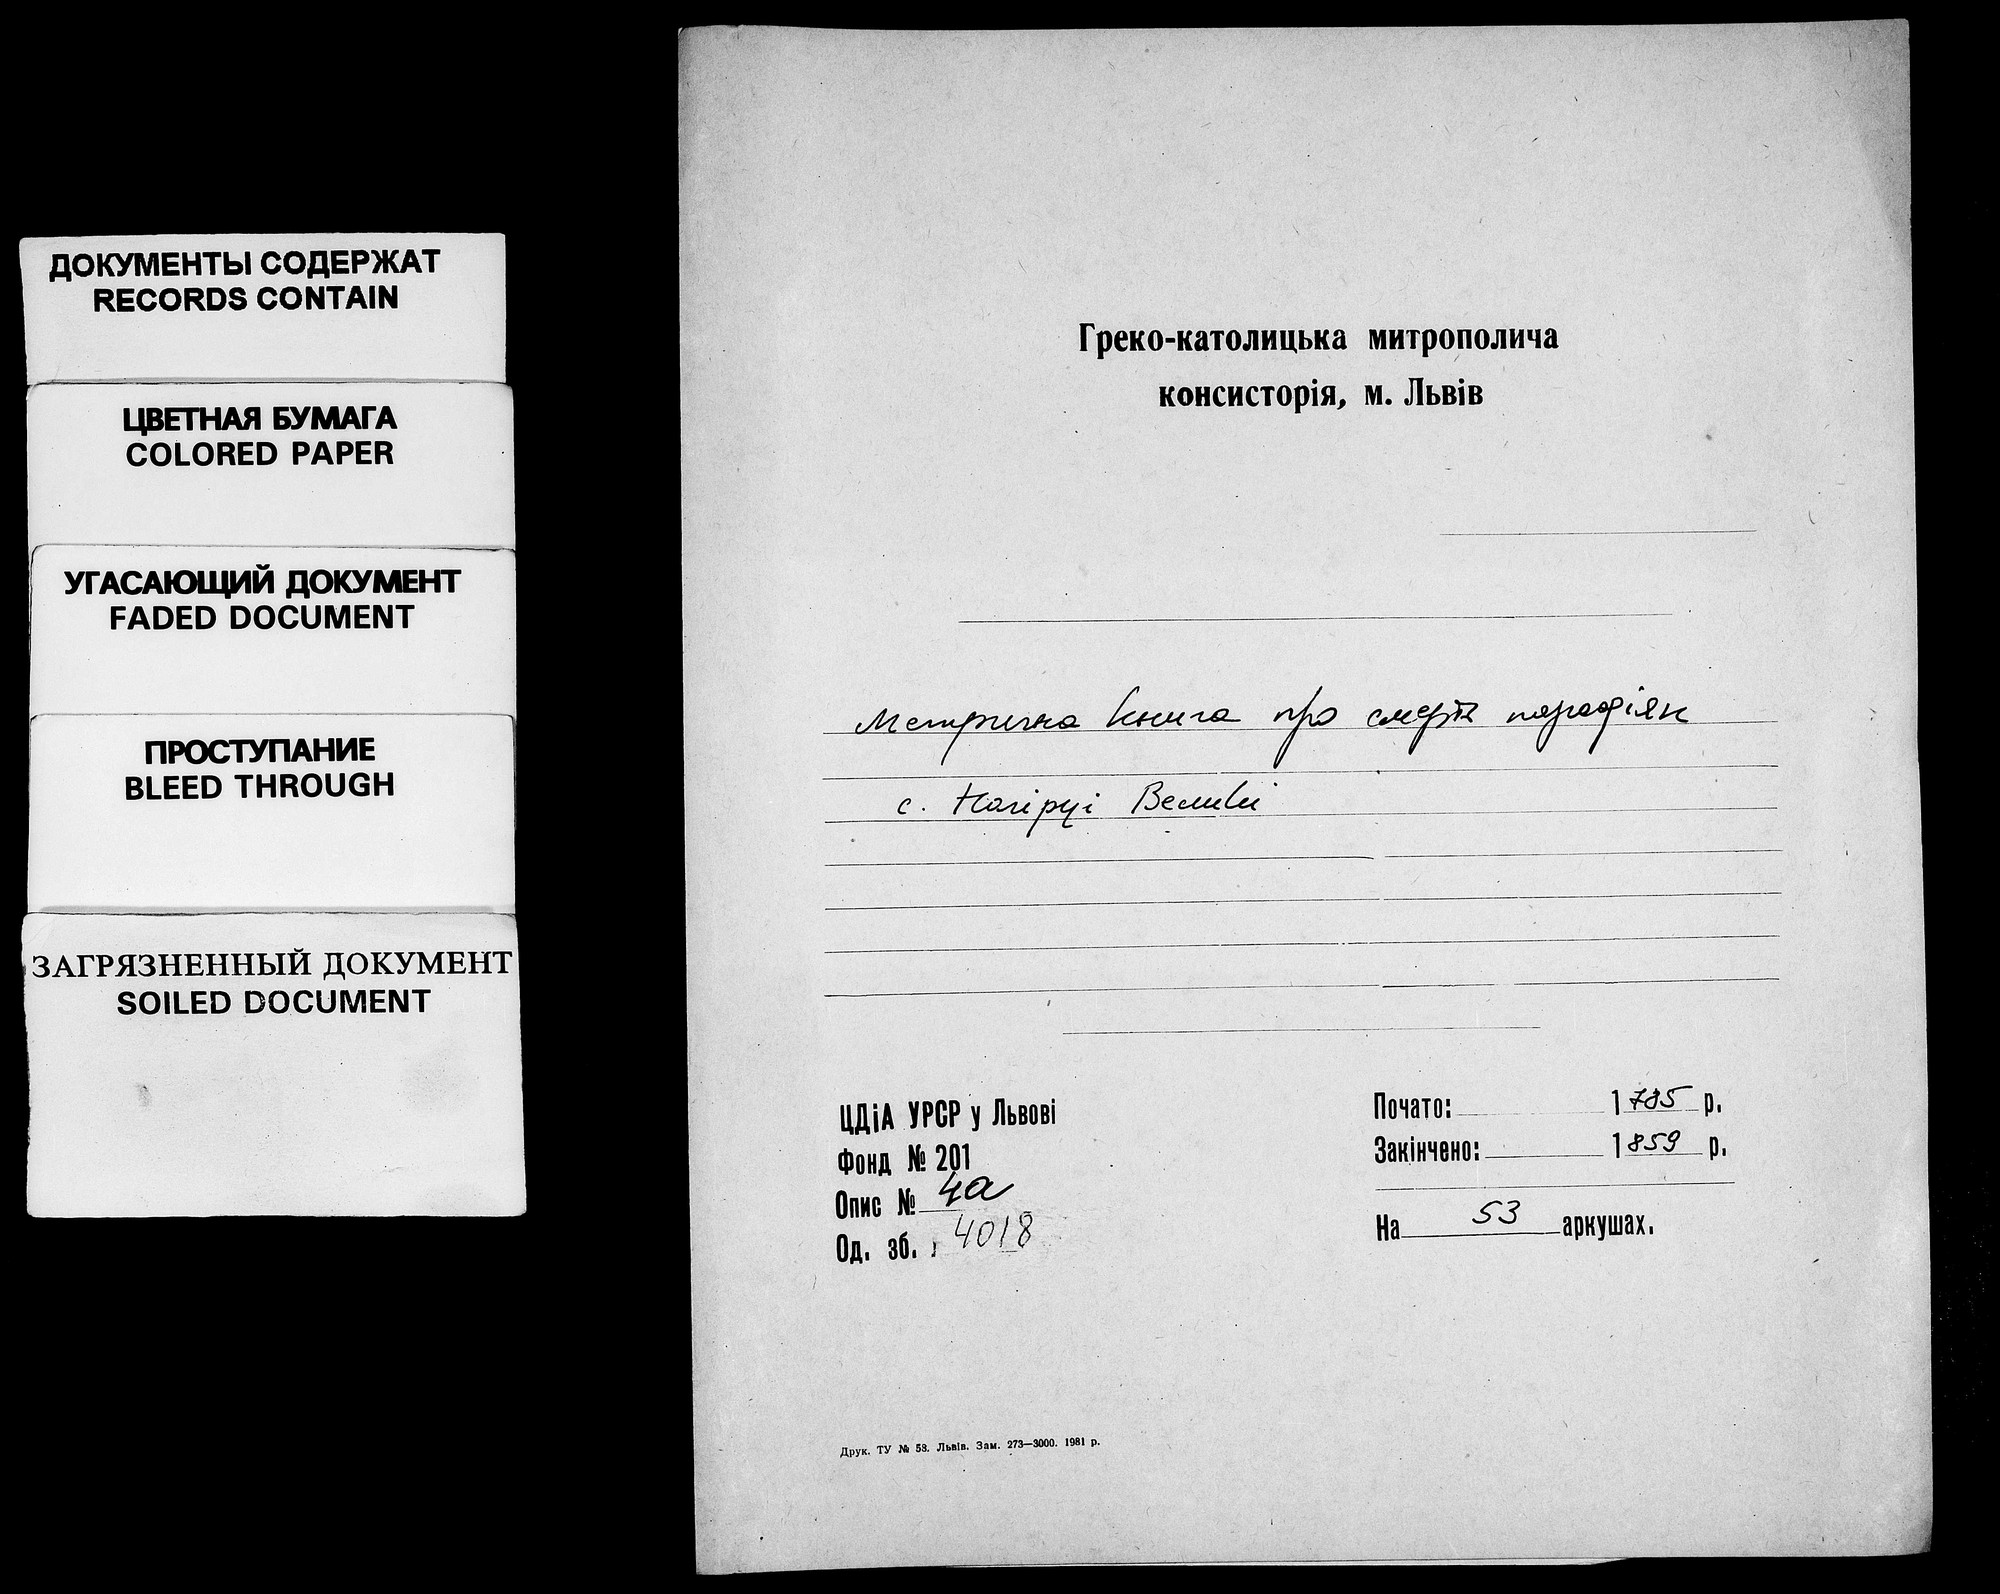 ДОКУМЕНТЫ СОДЕРЖАТ
RECORDS CONTAIN
ЦВЕТНАЯ БУМАГА
COLORED PAPER
УГАСАЮЩИЙ ДОКУМЕНТ
FADED DOCUMENT
ПРОСТУПАНИЕ
BLEED THROUGH
ЗАГРЯЗНЕННЫЙ ДОКУМЕНТ
SOILED DOCUMENT
Греко-католицька митрополича
консисторія, м. Львів
Метрична книга про смерть парафіян
с. Нагірці Великі
ЦДіА УРСР у Львові
Фонд № 201
Опис № 4а
Од. зб. 4018
Почато: 1785 р.
Закінчено: 1859 р.
На 53 аркушах.
Друк. ТУ № 58. Львів. Зам. 273—3000. 1981 р.